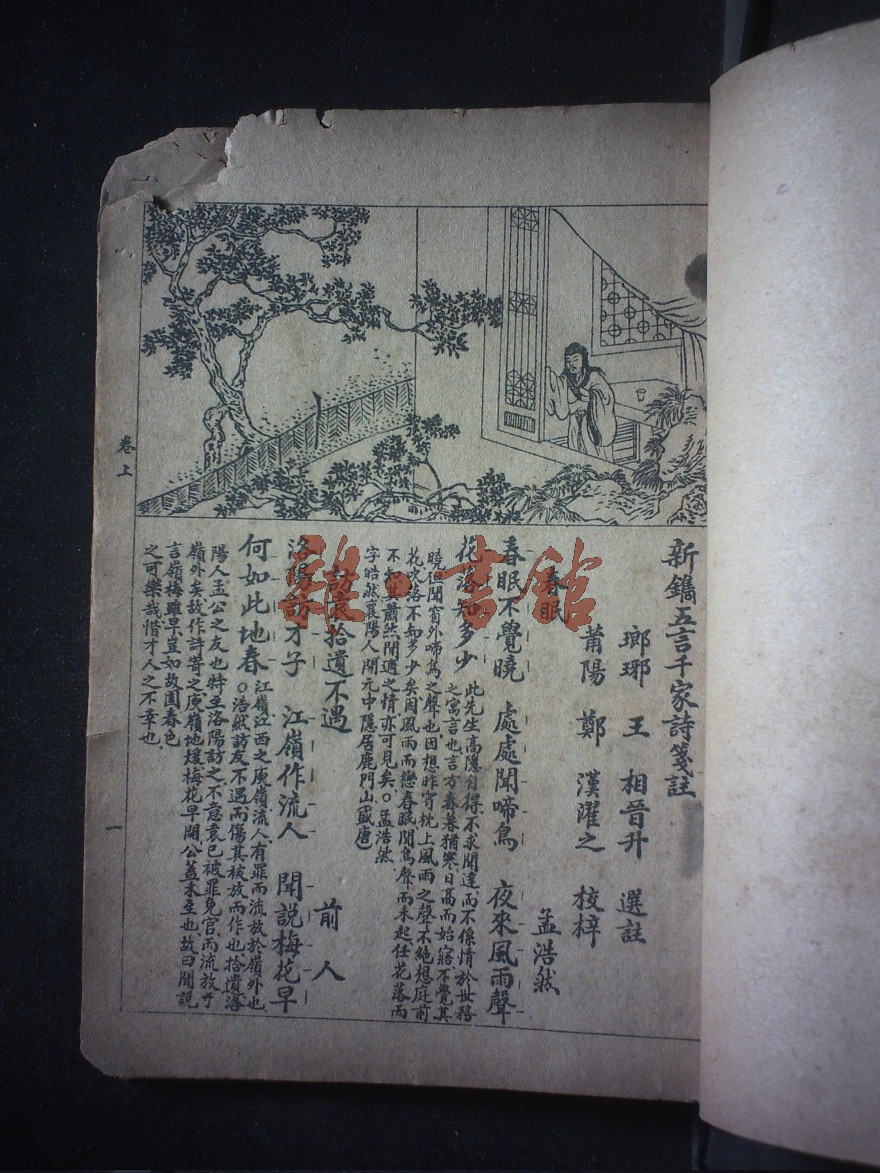 新鐫五言千家詩箋註
瑯琊 王 相晉升 選註
莆陽 鄭 漢濯之 校梓
春眠 孟浩然
春眠不覺曉 處處聞啼鳥 夜來風雨聲
花落知多少 此先生高隱自得不求聞達而不係情於世務
之寓言也言方春暮猶寒日高而始寤不覺其
曉但聞窗外啼鳥之聲也因想昨宵枕上風雨之聲不絕想庭前
花吹落不知多少矣因風雨而戀春眠聞鳥聲而未起任花落而
不知其蕭然閒適之情亦可見矣○孟浩然
字皓然襄陽人開元中隱居鹿門山(盛唐)
訪袁拾遺不遇 前人
洛陽訪才子 江嶺作流人 聞說梅花早
何如此地春 江嶺江西之庾嶺流人有罪而流放於嶺外也
○浩然訪友不遇而傷其被放而作也拾遺洛
陽人孟公之友也特至洛陽訪之不意袁已被罪免官而流放于
嶺外矣故作詩寄之庾嶺地煖梅花早開公蓋未至也故曰聞說
言嶺梅雖早豈如故園春色
之可樂哉惜才人之不幸也
卷上
一
雜·書館